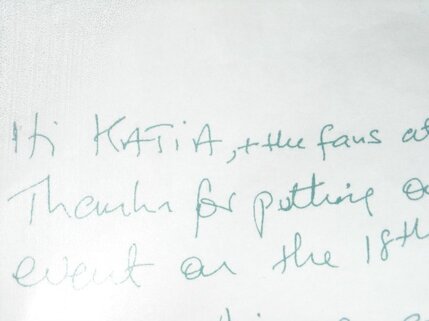 Hi KATiA, + the fans
Thanks for putting
event on the 18th